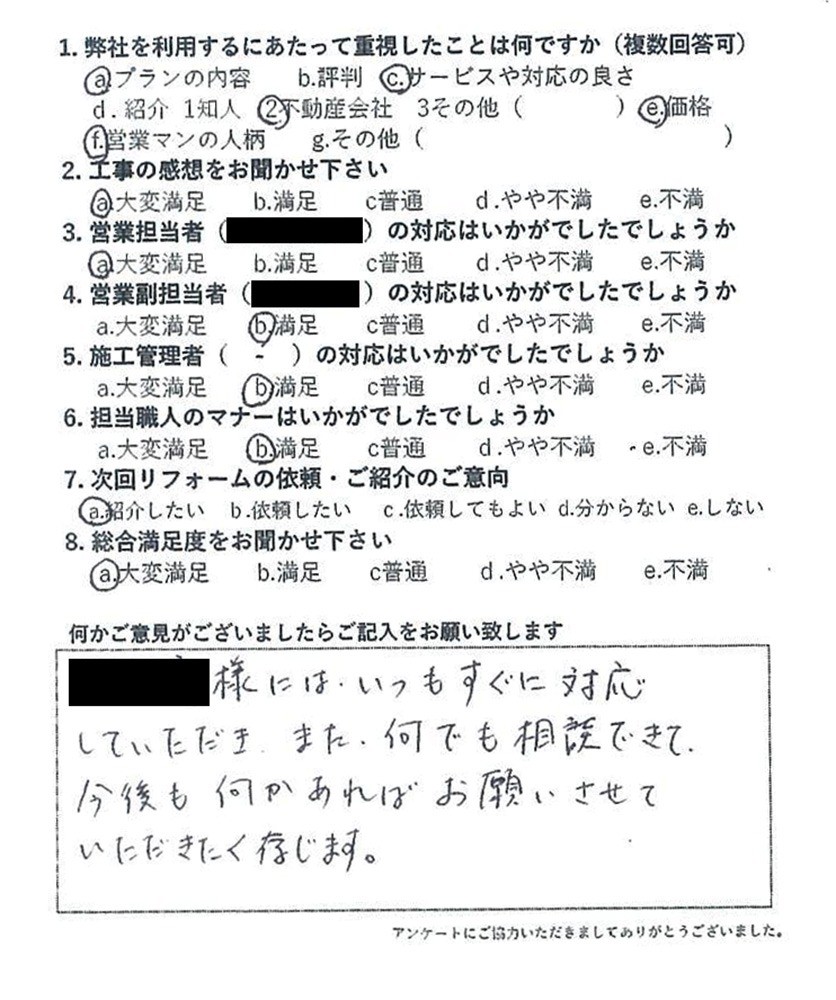 1. 弊社を利用するにあたって重視したことは何ですか（複数回答可）
a.プランの内容 b.評判 c.サービスや対応の良さ
d. 紹介 1知人 2不動産会社 3その他（ ） e.価格
f.営業マンの人柄 g.その他（ ）
2. 工事の感想をお聞かせ下さい
a.大変満足 b.満足 c普通 d.やや不満 e.不満
3. 営業担当者（ ）の対応はいかがでしたでしょうか
a.大変満足 b.満足 c普通 d.やや不満 e.不満
4. 営業副担当者（ ）の対応はいかがでしたでしょうか
a.大変満足 b.満足 c普通 d.やや不満 e.不満
5. 施工管理者（ - ）の対応はいかがでしたでしょうか
a.大変満足 b.満足 c普通 d.やや不満 e.不満
6. 担当職人のマナーはいかがでしたでしょうか
a.大変満足 b.満足 c普通 d.やや不満 e.不満
7. 次回リフォームの依頼・ご紹介のご意向
a.紹介したい b.依頼したい c.依頼してもよい d.分からない e.しない
8. 総合満足度をお聞かせ下さい
a.大変満足 b.満足 c普通 d.やや不満 e.不満
何かご意見がございましたらご記入をお願い致します
様には、いつもすぐに対応
していただき、また、何でも相談できて、
今後も何かあればお願いさせて
いただきたく存じます。
アンケートにご協力いただきましてありがとうございました。